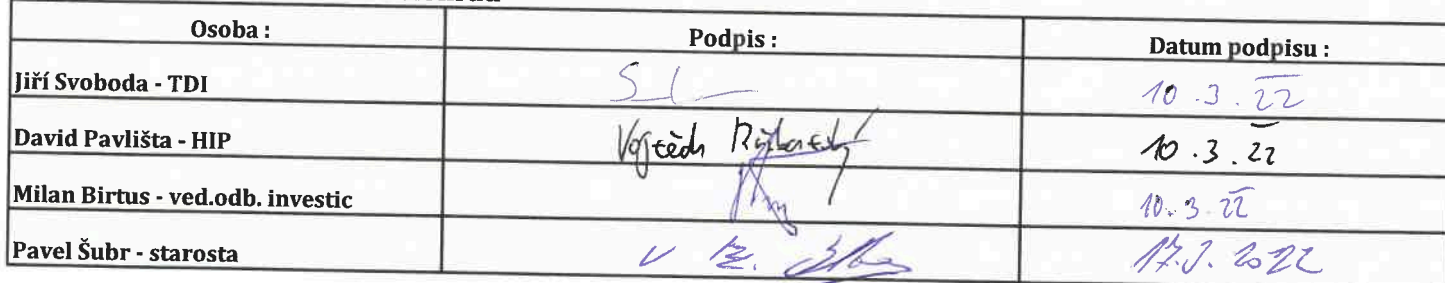 Osoba : Podpis : Datum podpisu :
Jiří Svoboda - TDI 10.3.22
David Pavlišta - HIP Vojtěch 10.3.22
Milan Birtus - ved.odb. investic 10.3.22
Pavel Šubr - starosta v z. 17.3.2022